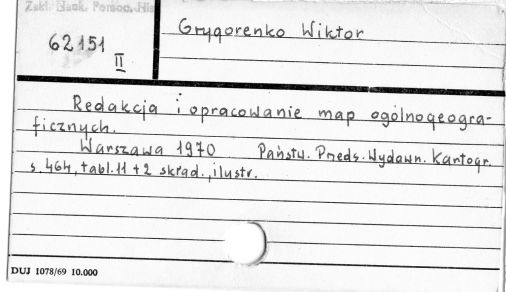 Zakł. Nauk. Pomoc. His
62151
II
Grygorenko Wiktor
Redakcja i opracowanie map ogólnogeogra-
ficznych.
Warszawa 1970 Państw. Przeds. Wydawn. Kartogr.
s. 464, tabl. 11 + 2 skrad., ilustr.
DUJ 1078/69 10.000